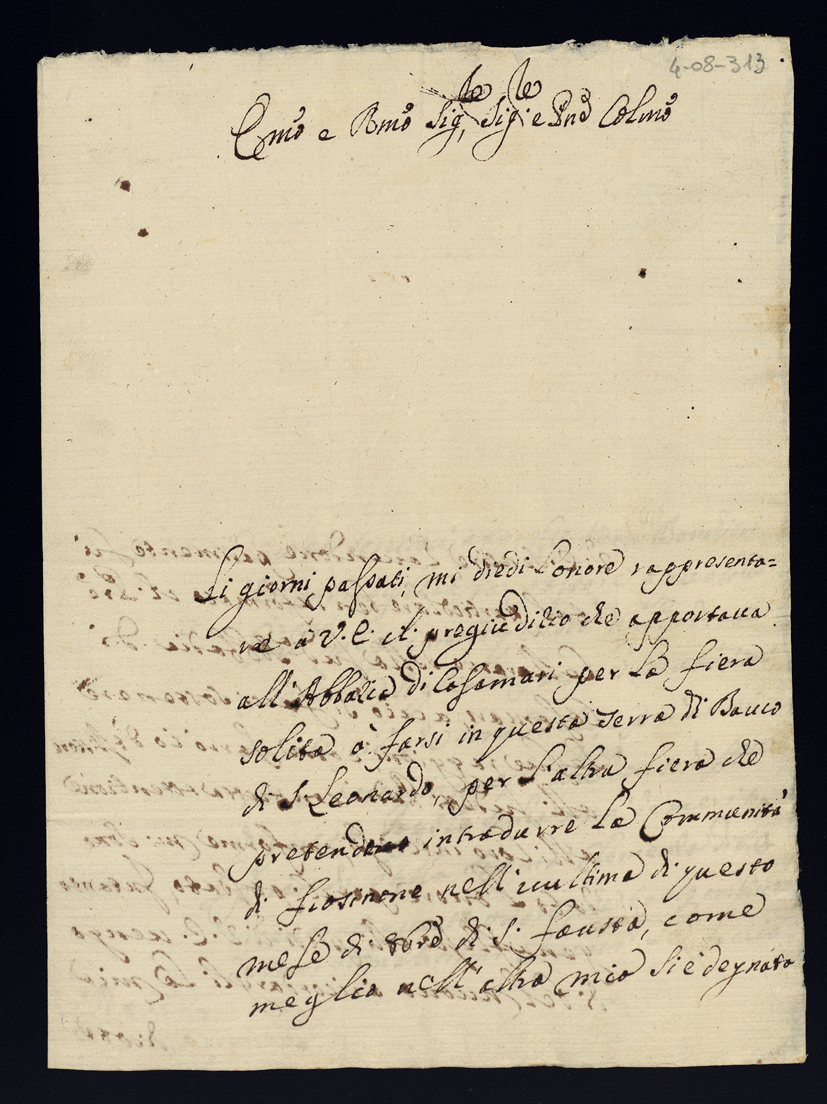 4-08-313
Emo e Rmo Sig.re Sig.re e Pne Colmo
Li giorni passati, mi diedi l'onore rappresenta=
re a V. E. il pregiuditio che apportava
all'Abbatia di Casamari per la fiera
solita à farsi in questa Terra di Bauco
di S. Leonardo, per l'altra fiera che
pretende introdurre la Communità
di frosinone nell'ultima di questo
mese di 8bre di S. fausta, come
meglio nell'altra mia si è degnata